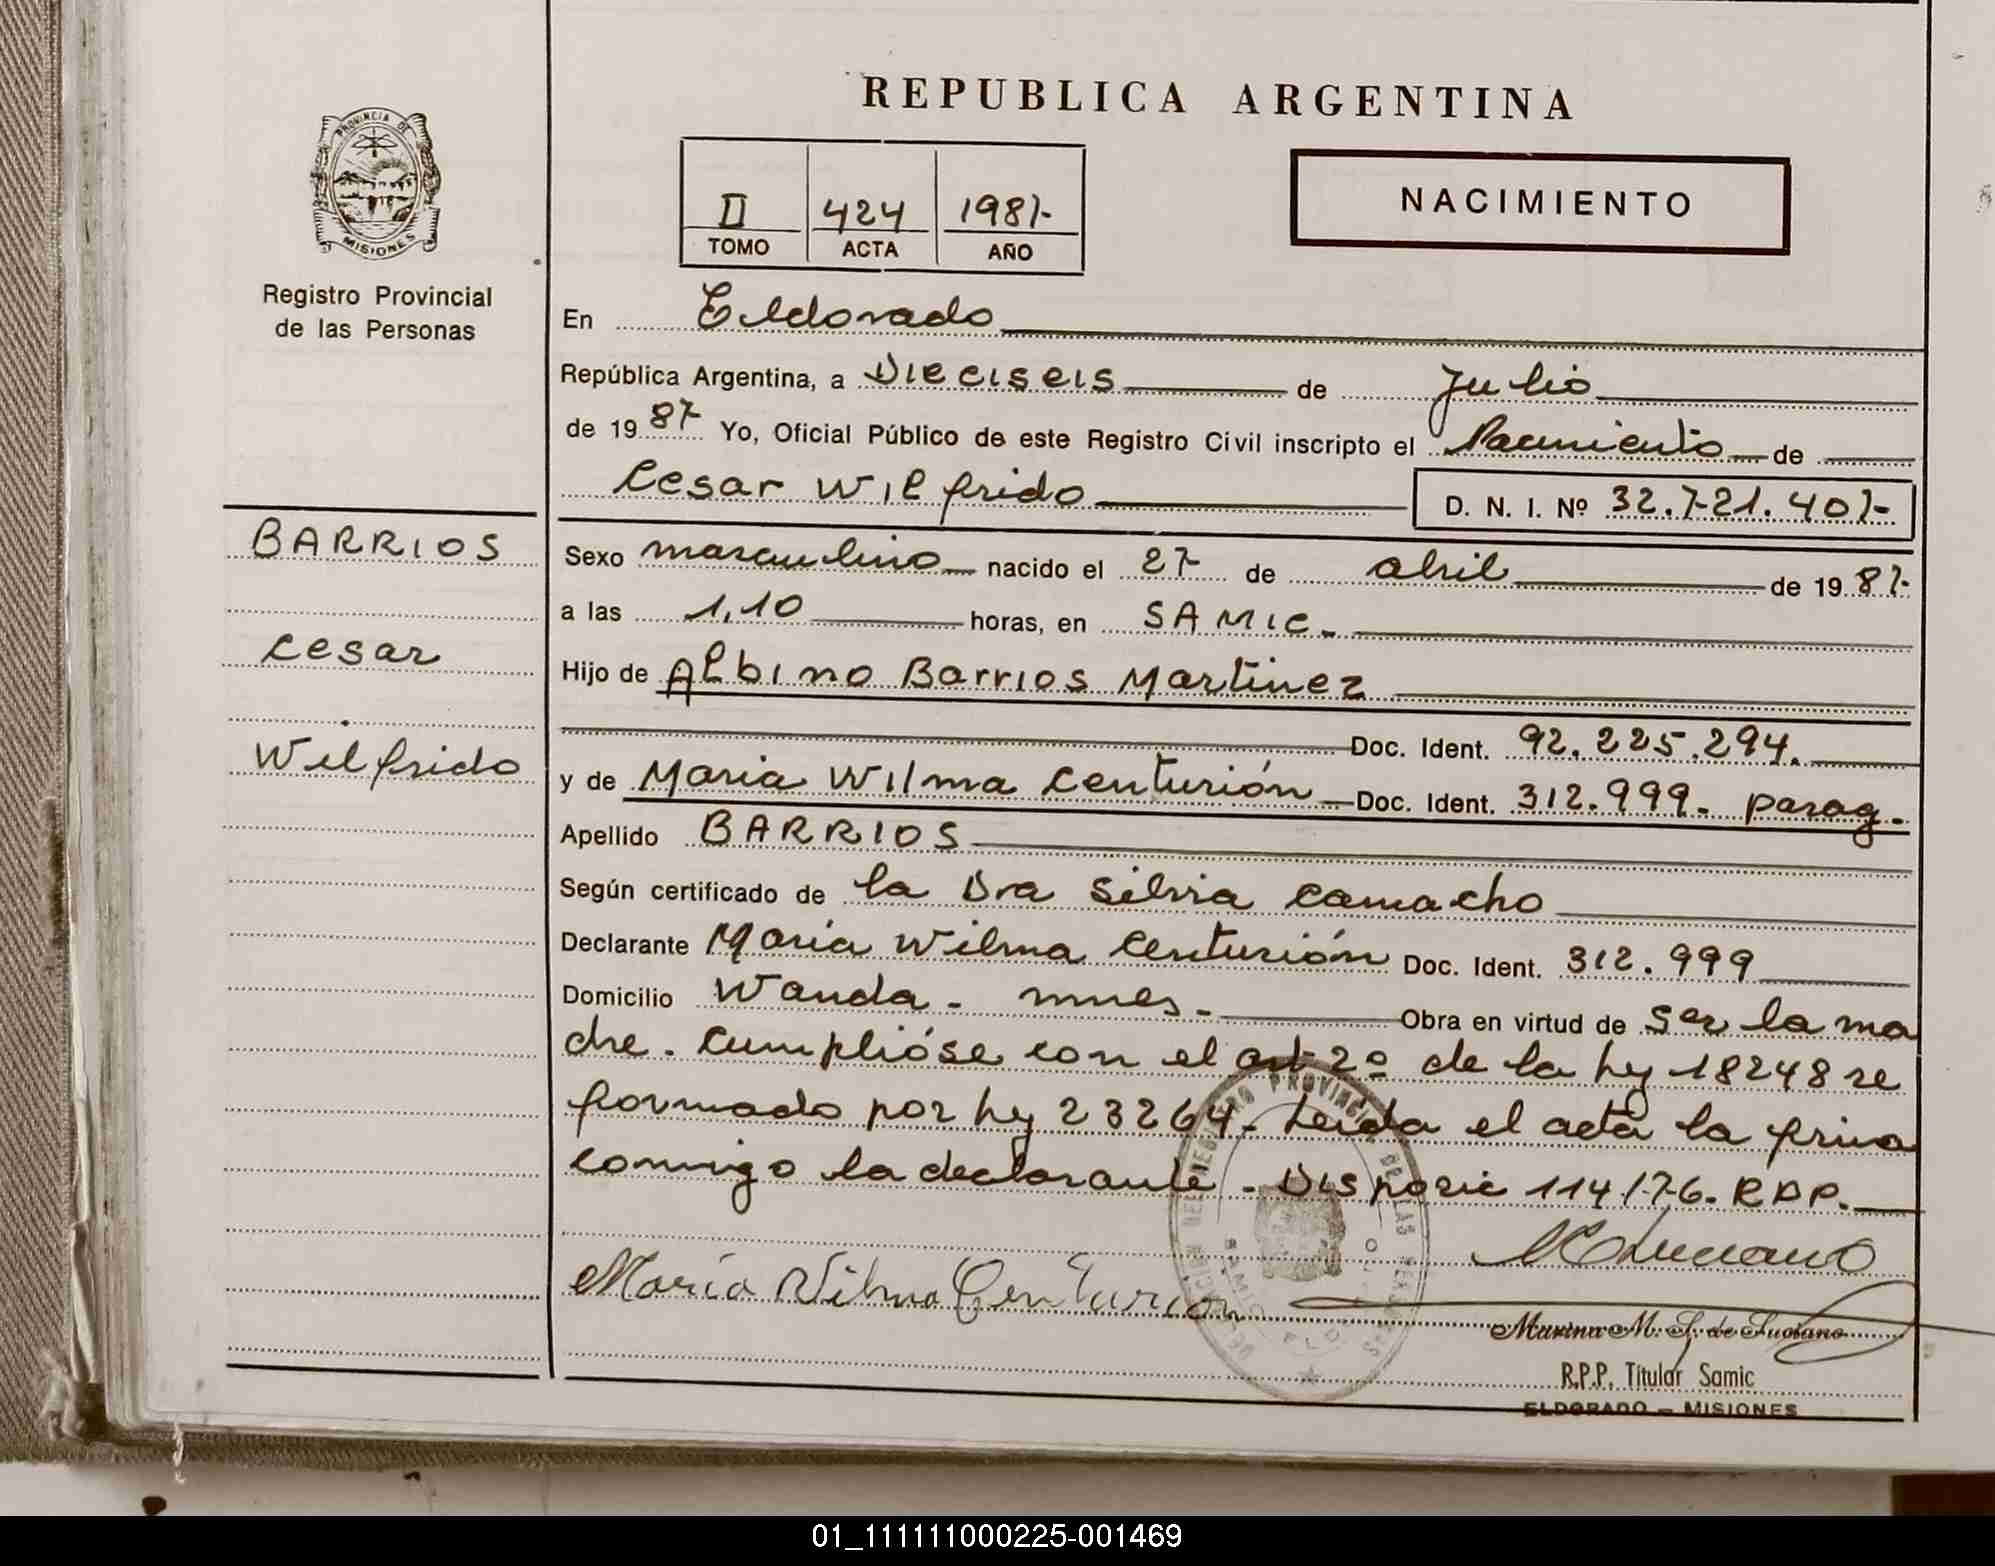 REPUBLICA ARGENTINA
PROVINCIA DE MISIONES
Registro Provincial
de las Personas
II 424 1987-
TOMO ACTA AÑO
NACIMIENTO
En Eldorado
República Argentina, a Dieciseis de Julio
de 1987 Yo, Oficial Público de este Registro Civil inscripto el Nacimiento de
Cesar Wilfrido D. N. I. Nº 32.721.407-
BARRIOS
Cesar
Wilfrido
Sexo masculino nacido el 27 de abril de 1987-
a las 1,10 horas, en SAMIC.-
Hijo de Albino Barrios Martinez
Doc. Ident. 92.225.294.
y de Maria Wilma Centurión Doc. Ident. 312.999- parag.
Apellido BARRIOS
Según certificado de la Dra Silvia Camacho
Declarante María Wilma Centurión Doc. Ident. 312.999
Domicilio Wanda - mnes.- Obra en virtud de ser la ma
dre. Cumplióse con el art 2º de la ley 18248 re
formado por ley 23264. Leida el acta la firma
conmigo la declarante. Disposic 114/76. RPP.
María Wilma Centurión
Marina M. S. de Luciano
R.P.P. Titular Samic
ELDORADO — MISIONES
01_111111000225-001469